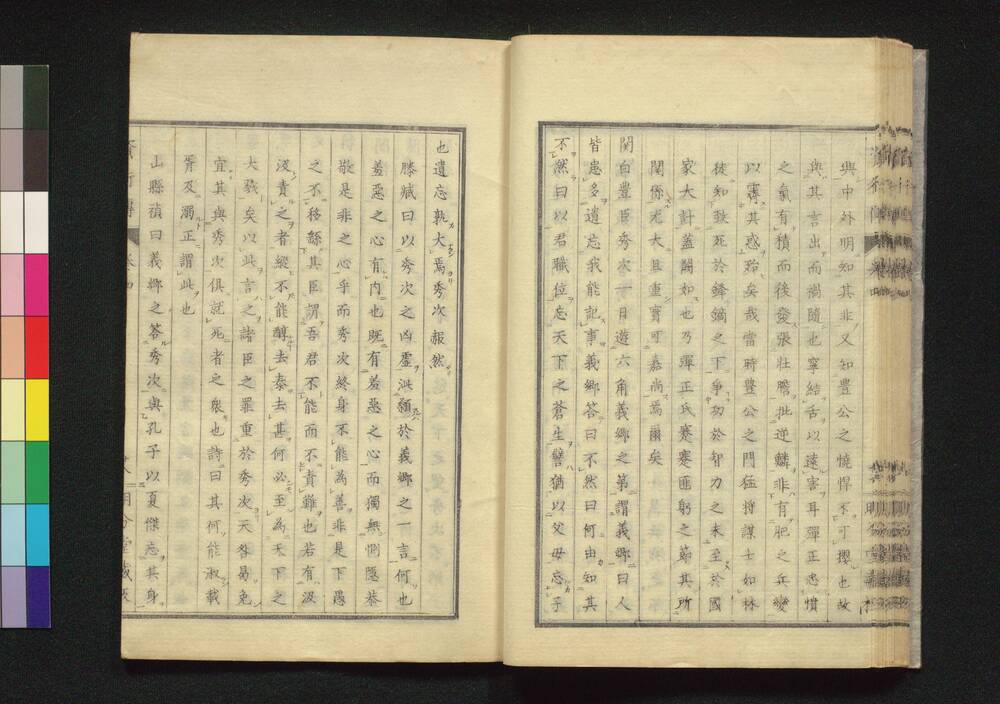 與中外明知其非又知豊公之憢悍不可攖也故
與其言出而禍隨也寧結舌以遠害耳彈正悉憤
之氣有積而後發張壮膽批逆鱗非有肥之兵變
以審其惑殆矣哉當時豊公之門猛将謀士如林
徒知致死於鋒鏑之下爭功於智力之末至於國
家大計蓋闕如也乃彈正氏蹇蹇匪躬之節其所
関係尤大且重寔可嘉尚焉爾矣
関白豊臣秀次一日遊六角義郷之第謂義郷曰人
皆患多遺忘我能記事義郷答曰不然曰何由知其
不然曰以君職位忘天下之蒼生譬猶以父母忘子
也遺忘孰大焉秀次赧然
滕贇曰以秀次之凶虐泚顙於義郷之一言何也
羞惡之心有内也既有羞惡之心而獨無惻隱恭
敬是非之心乎而秀次終身不能為善非是下愚
之不移繇其臣謂吾君不能而不責難也若有汲
汲責之者縱不能醇去泰去甚何必至為天下之
大戮矣以此言之諸臣之罪重於秀次天咎曷免
宜其與秀次俱就死者之衆也詩曰其何能淑載
胥及溺正謂此也
山縣禎曰義郷之答秀次與孔子以夏桀忘其身